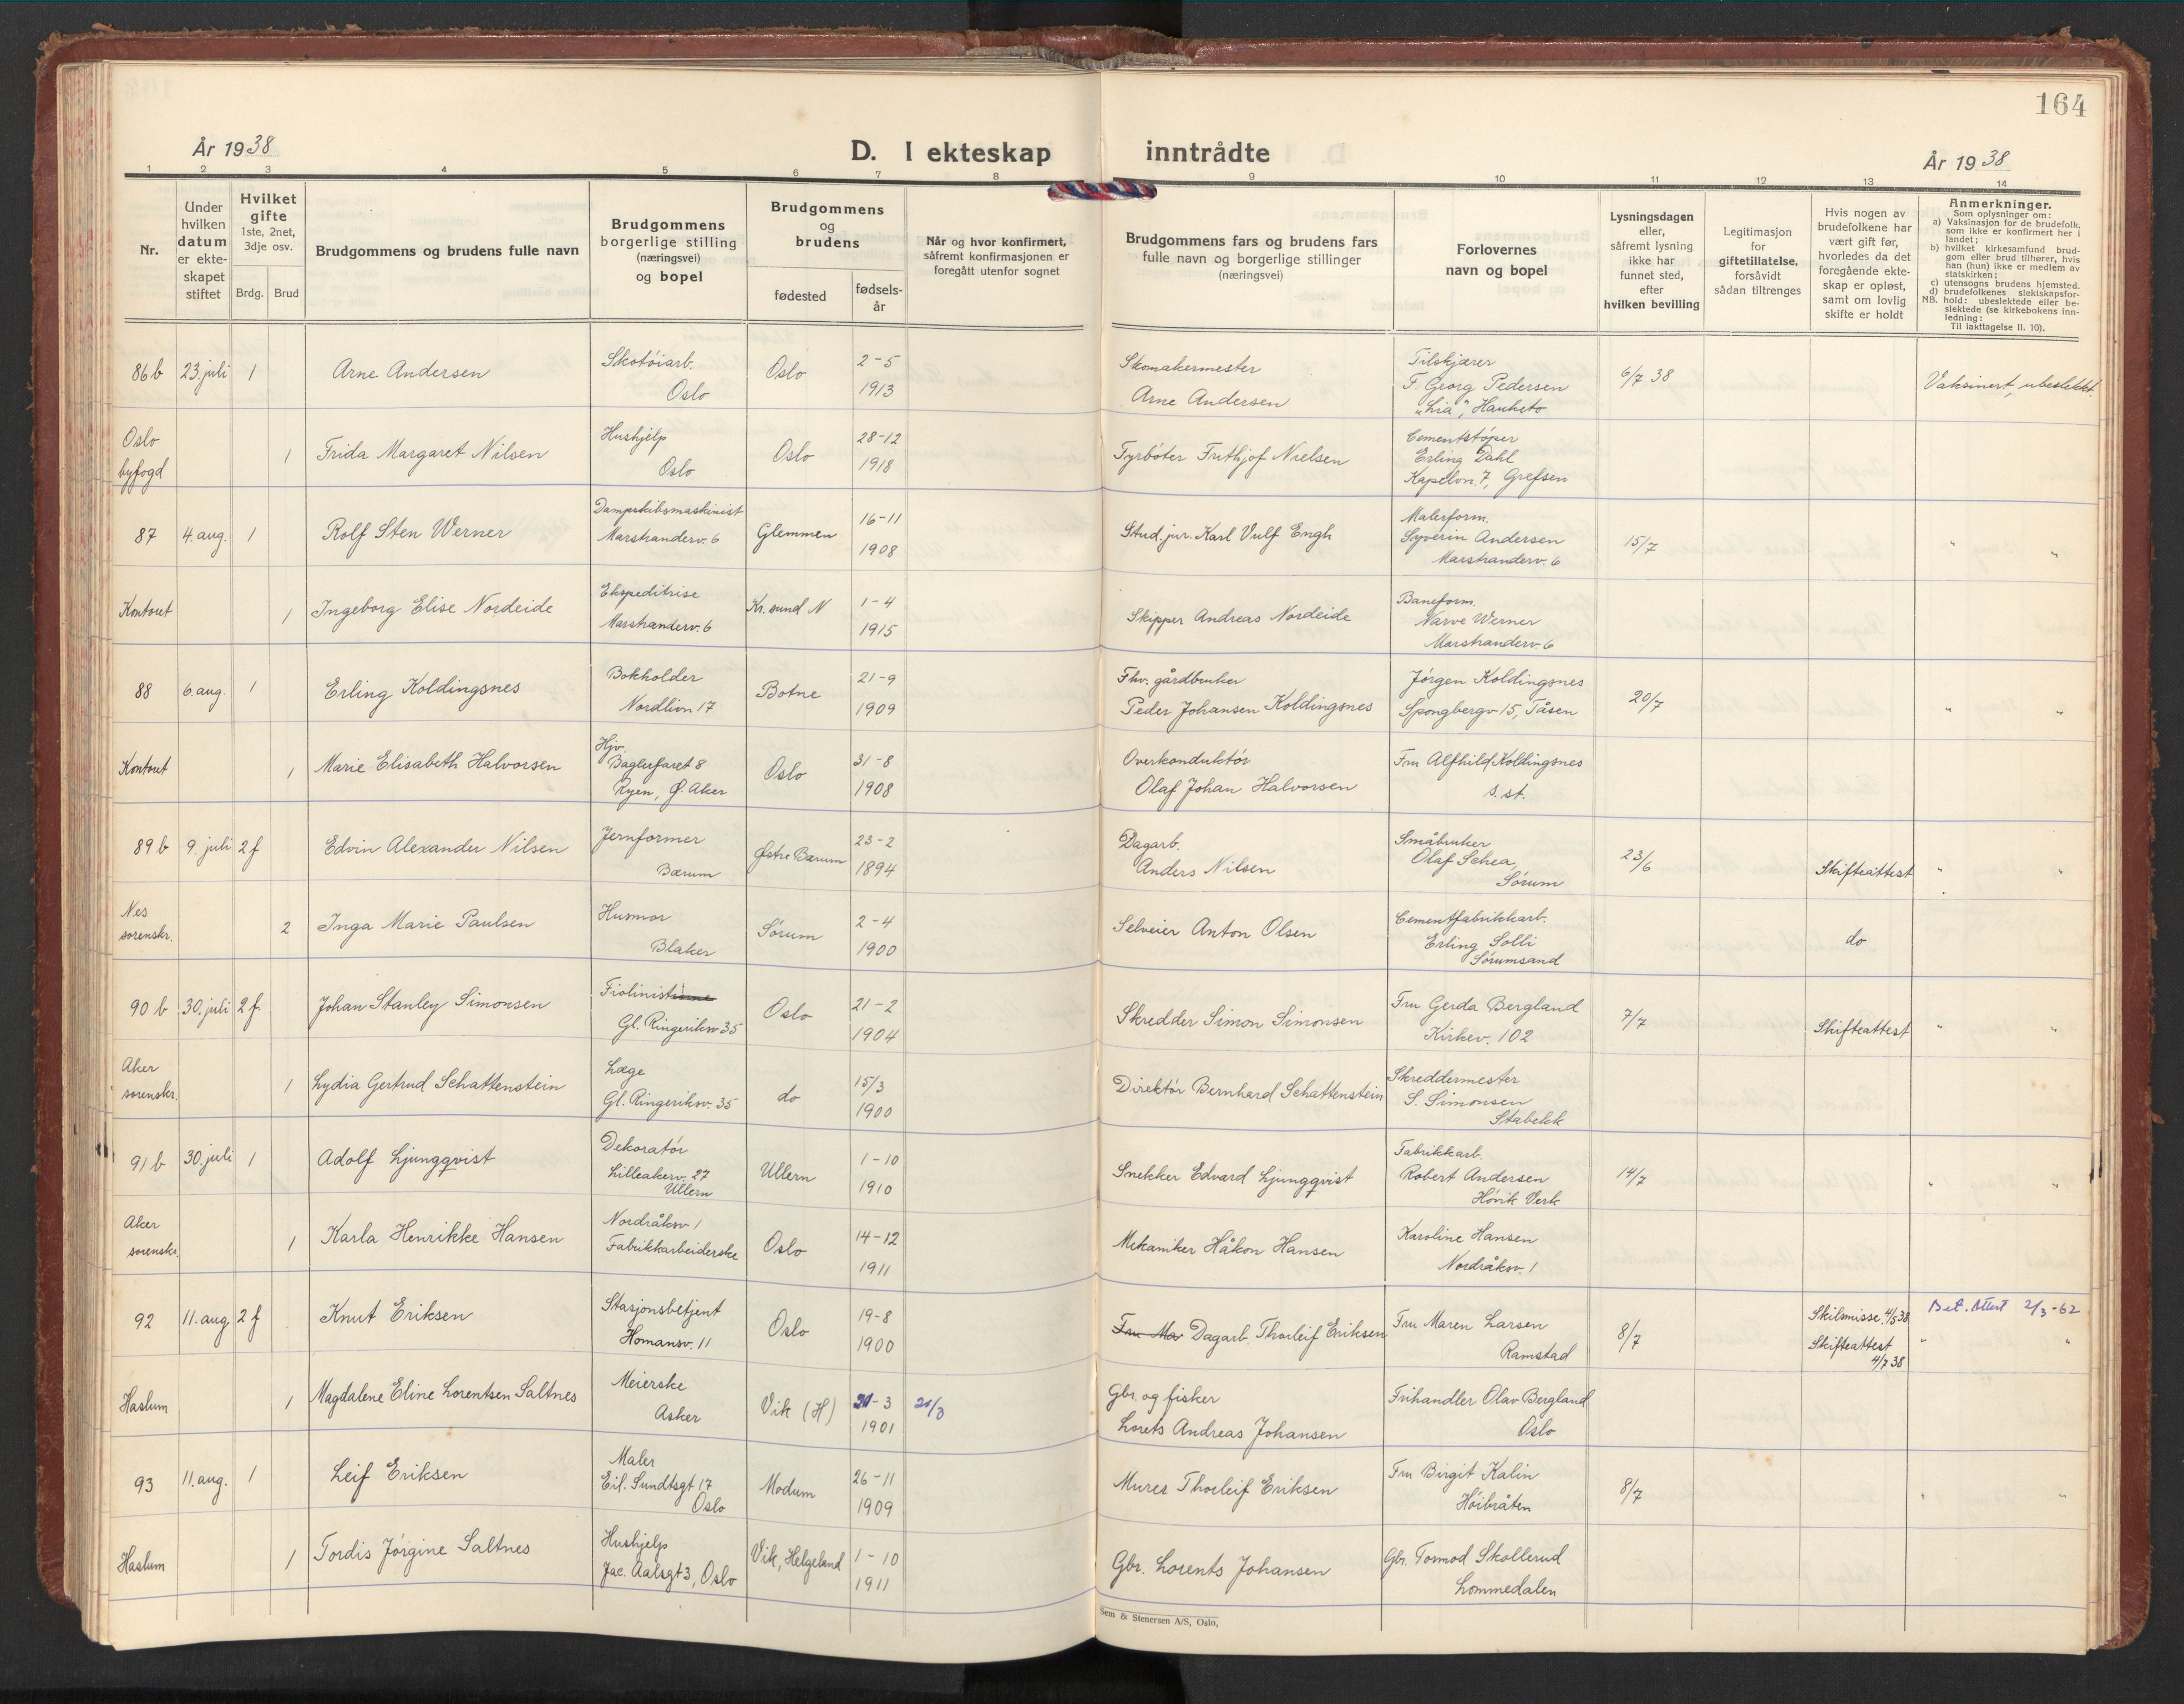 164
År 1938
D. I ekteskap inntrådte
År 1938
1 2 3 4 5 6 7 8 9 10 11 12 13 14
Nr.
Under hvilken datum er ekte-skapet stiftet
Hvilket gifte 1ste, 2net, 3dje osv.
Brdg. Brud
Brudgommens og brudens fulle navn
Brudgommens borgerlige stilling (næringsvei) og bopel
Brudgommens og brudens
fødested
fødsels-år
Når og hvor konfirmert, såfremt konfirmasjonen er foregått utenfor sognet
Brudgommens fars og brudens fars fulle navn og borgerlige stillinger (næringsvei)
Forlovernes navn og bopel
Lysningsdagen eller, såfremt lysning ikke har funnet sted, efter hvilken bevilling
Legitimasjon for giftetillatelse, forsåvidt sådan tiltrenges
Hvis nogen av brudefolkene har vært gift før, hvorledes da det foregående ekte-skap er opløst, samt om lovlig skifte er holdt
Anmerkninger.
Som oplysninger om:
a) Vaksinasjon for de brudefolk, som ikke er konfirmert her i landet;
b) hvilket kirkesamfund brud-gom eller brud tilhører, hvis han (hun) ikke er medlem av statskirken;
c) utensogns brudens hjemsted.
d) brudefolkenes slektskapsfor-hold: ubeslektede eller be-slektede (se kirkebokens inn-ledning:
NB. Til iakttagelse II. 10).
86 b 23. juli 1 Arne Andersen Skotøiarb. Oslo Oslo 2-5 1913 Skomakermester Arne Andersen Tilskjærer F. Georg Pedersen "Lia", Hauketo 6/7 38 Vaksinert, ubeslekt.
Oslo byfogd 1 Frida Margaret Nilsen Hushjelp Oslo Oslo 28-12 1918 Fyrbøter Frithjof Nielsen Cementstøper Erling Dahl Kapelvn. 7, Grefsen
87 4. aug. 1 Rolf Sten Werner Dampskibsmaskinist Marstranderv. 6 Glemmen 16-11 1908 Stud. jur. Karl Vulf Engh Malerform. Syverin Andersen Marstranderv. 6 15/7 " "
Kontoret 1 Ingeborg Elise Nordeide Ekspeditrise Marstranderv. 6 Kr. sund N 1-4 1915 Skipper Andreas Nordeide Baneform. Narve Werner Marstranderv. 6
88 6. aug. 1 Erling Koldingsnes Bokholder Nordlivn 17 Botne 21-9 1909 Fhv. gårdbruker Peder Johansen Koldingsnes Jørgen Koldingsnes Spongbergv 15, Tåsen 20/7 " "
Kontoret 1 Marie Elisabeth Halvorsen Hjv. Baglerfaret 8 Ryen, Ø. Aker Oslo 31-8 1908 Overkonduktør Olaf Johan Halvorsen Fru Alfhild Koldingsnes s. st.
89 b 9. juli 2 f Edvin Alexander Nilsen Jernformer Bærum Østre Bærum 23-2 1894 Dagarb. Anders Nilsen Småbruker Olaf Schea, Sørum 23/6 Skifteattest " "
Nes sorenskr. 2 Inga Marie Paulsen Husmor Blaker Sørum 2-4 1900 Selveier Anton Olsen Cementfabrikkarb. Erling Solli Sørumsand do
90 b 30. juli 2 f. Johan Stanley Simonsen Fiolinist Gl. Ringeriksv 35 Oslo 21-2 1904 Skredder Simon Simonsen Fru Gerda Bergland Kirkev. 102 7/7 Skifteattest " "
Aker sorenskr. 1 Lydia Gertrud Schattenstein Læge Gl. Ringeriksv. 35 do 15/3 1900 Direktør Bernhard Schattenstein Skreddermester S. Simonsen Stabekk
91 b 30. juli 1 Adolf Ljungqvist Dekoratør Lilleakerv. 27 Ullern Ullern 1-10 1910 Snekker Edvard Ljungqvist Fabrikkarb. Robert Andersen Høvik Verk 14/7 " "
Aker sorenskr. 1 Karla Henrikke Hansen Nordråksv 1 Fabrikkarbeiderske Oslo 14-12 1911 Mekaniker Håkon Hansen Karoline Hansen Nordråksv. 1
92 11. aug 2 f Knut Eriksen Stasjonsbetjent Homansv. 11 Oslo 19-8 1900 Fru Ma Dagarb. Thorleif Eriksen Fru Maren Larsen Ramstad 8/7 Skilsmisse 4/5 38 Skifteattest 4/7 38 Bet. Attest 2/3-62 " "
Haslum 1 Magdalene Eline Lorentsen Saltnes Meierske Asker Vik (H) -3 1901 21/3 Gbr. og fisker Lorets Andreas Johansen Frihandler Olav Bergland Oslo
93 11. aug. 1 Leif Eriksen Maler Eil. Sundtsgt 17 Oslo Modum 26-11 1909 Murer Thorleif Eriksen Fru Birgit Kalin Høibråten 8/7 " "
Haslum 1 Tordis Jørgine Saltnes Hushjelp Jac. Aalsgt 3, Oslo Vik, Helgeland 1-10 1911 Gbr. Lorents Johansen Gbr. Tormod Skollerud Lommedalen
Sem & Stenersen A/S, Oslo.